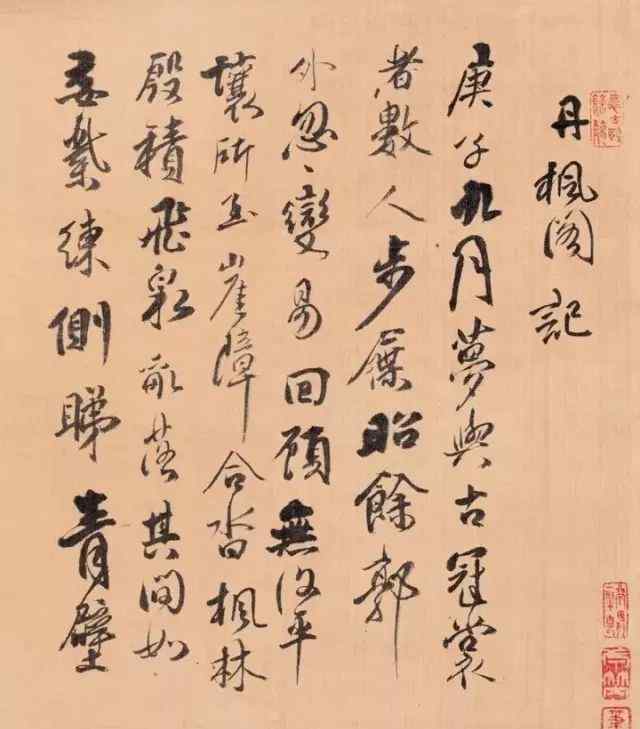 丹楓阁記
庚子九月夢與古冠裳
者數人步屧昭餘郭
外忽〻變易回顧無復平
壤所至崖障合沓楓林
殷積飛泉散落其間如
練側睇青壁